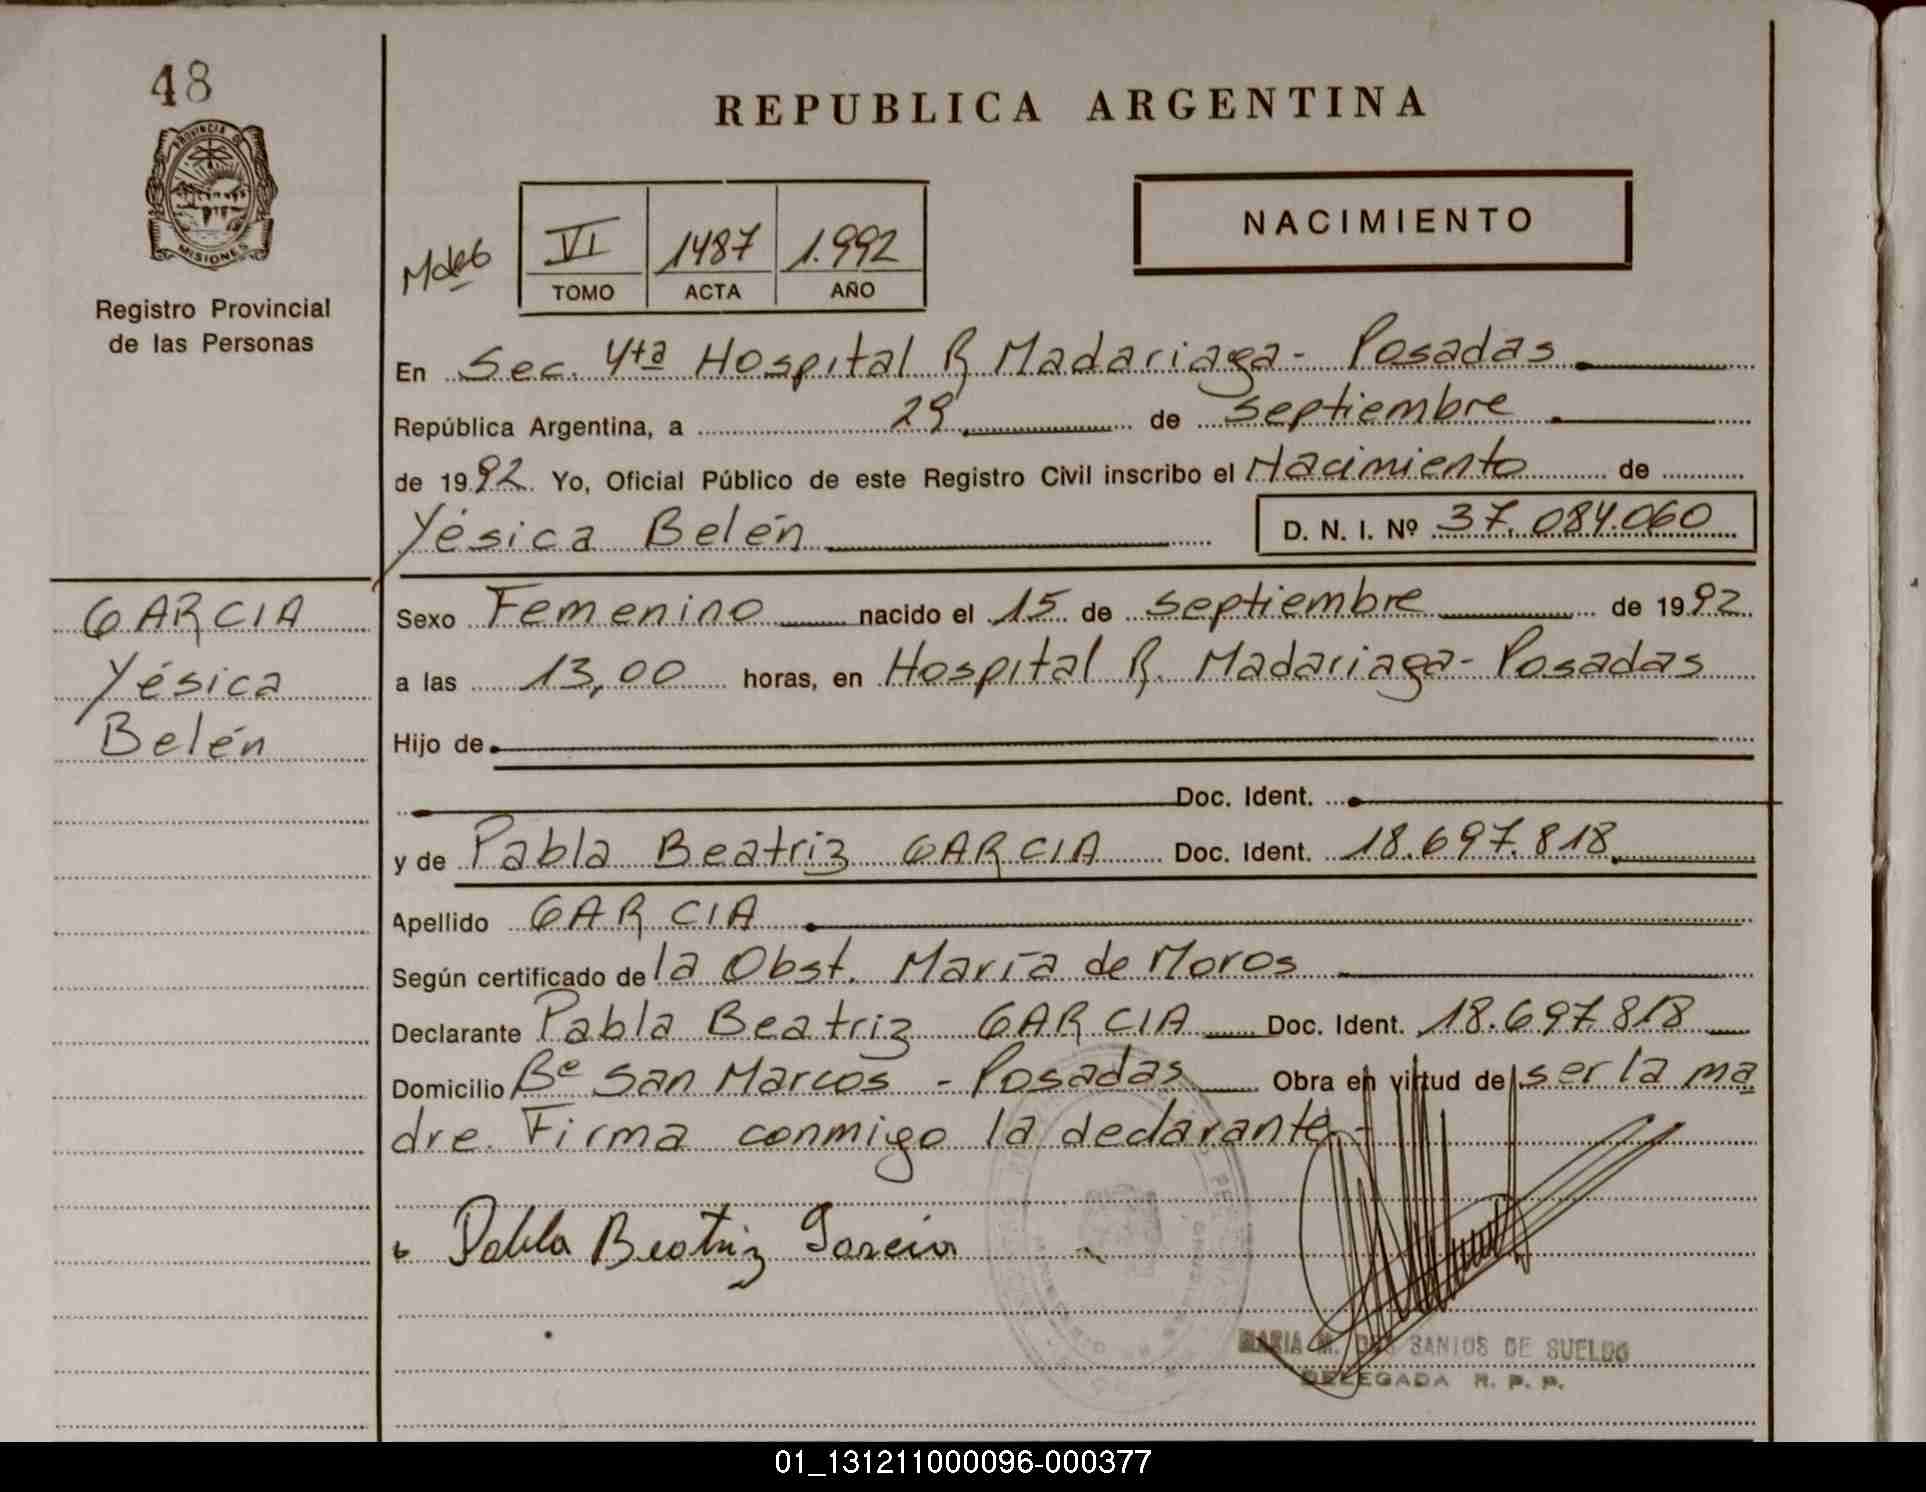 48
PROVINCIA DE
MISIONES
Registro Provincial
de las Personas
REPUBLICA ARGENTINA
NACIMIENTO
VI 1487 1.992
TOMO ACTA AÑO
En Sec. 4ta Hospital R Madariaga - Posadas
República Argentina, a 29 de septiembre
de 1992 Yo, Oficial Público de este Registro Civil inscribo el Nacimiento de
Yésica Belén D. N. I. Nº 37.084.060
GARCIA
Yésica
Belén
Sexo Femenino nacido el 15 de septiembre de 1992
a las 13,00 horas, en Hospital R. Madariaga - Posadas
Hijo de
Doc. Ident.
y de Pabla Beatriz GARCIA Doc. Ident. 18.697.818
Apellido GARCIA
Según certificado de la Obst. María de Moros
Declarante Pabla Beatriz GARCIA Doc. Ident. 18.697.818
Domicilio Bº San Marcos - Posadas Obra en virtud de ser la ma
dre. Firma conmigo la declarante -
Pabla Beatriz Garcia
MARIA M. DOS SANTOS DE SUELDO
DELEGADA R. P. P.
01_131211000096-000377